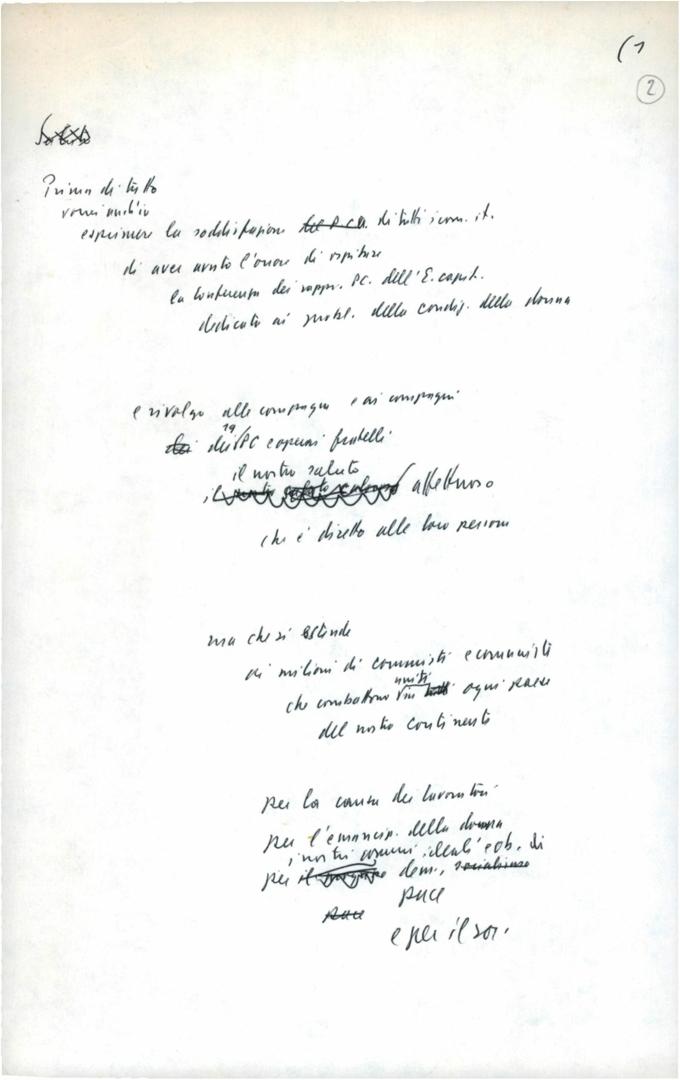 (1
2
Prima di tutto
vorrei anch'io
esprimere la soddisfazione del P.C.I. di tutti i com. it.
di aver avuto l'onore di ospitare
la conferenza dei rappr. PC. dell'E. capit.
dedicata ai probl. della condiz. della donna
e rivolgo alle compagne e ai compagni
dei dei 19 PC e operai fratelli
il nostro saluto
il nostro saluto affettuoso
che è diretto alle loro persone
ma che si estende
ai milioni di comunisti e comuniste
che combattono uniti in tutti ogni paese
del nostro continente
per la causa dei lavoratori
per l'emancip. della donna
i nostri comuni ideali e ob. di
per il dem., socialismo
pace pace
e per il soc.